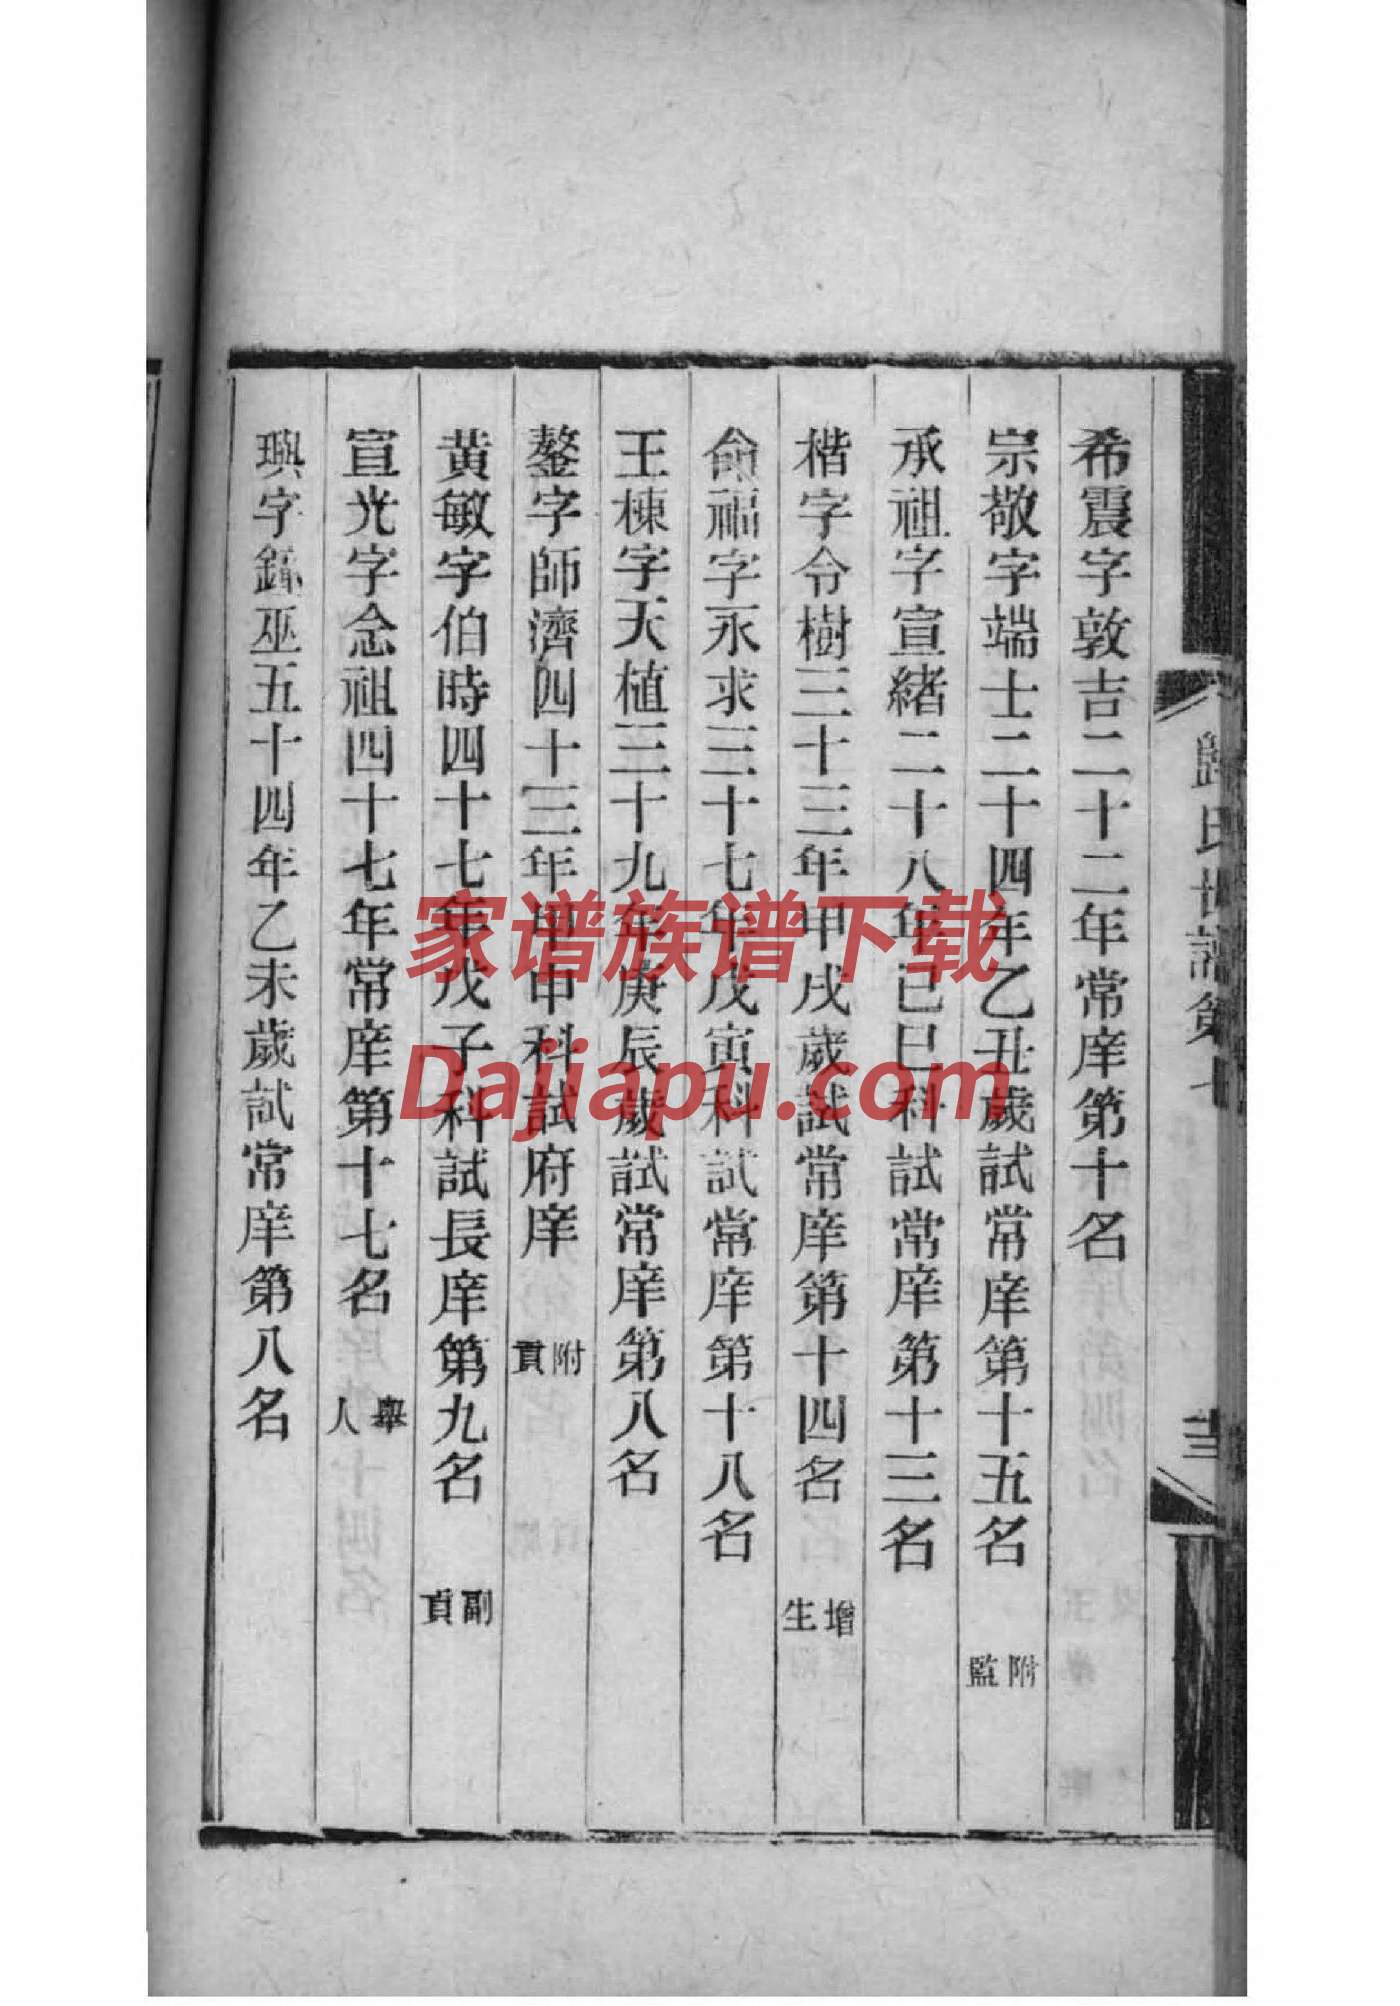 希震字敦吉二十二年常庠第十名
宗敬字端士二十四年乙丑歲試常庠第十五名 附監
承祖字宣緒二十八年己巳科試常庠第十三名
楷字令樹三十三年甲戌歲試常庠第十四名 增生
俞福字永求三十七年戊寅科試常庠第十八名
王棟字天植三十九年庚辰歲試常庠第八名
鏊字師濟四十三年甲申科試府庠 附貢
黄敏字伯時四十七年戊子科試長庠第九名 副貢
宣光字念祖四十七年常庠第十七名 舉人
璵字巫五十四年乙未歲試常庠第八名
歸氏世譜第十
家谱族谱下载
Dajiapu.com